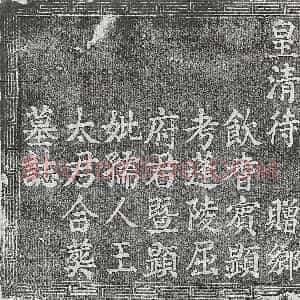 皇清待 贈鄉
飲耆賓顯
考蓮陵屈
府君暨顯
妣孺人王
太君合葬
墓誌